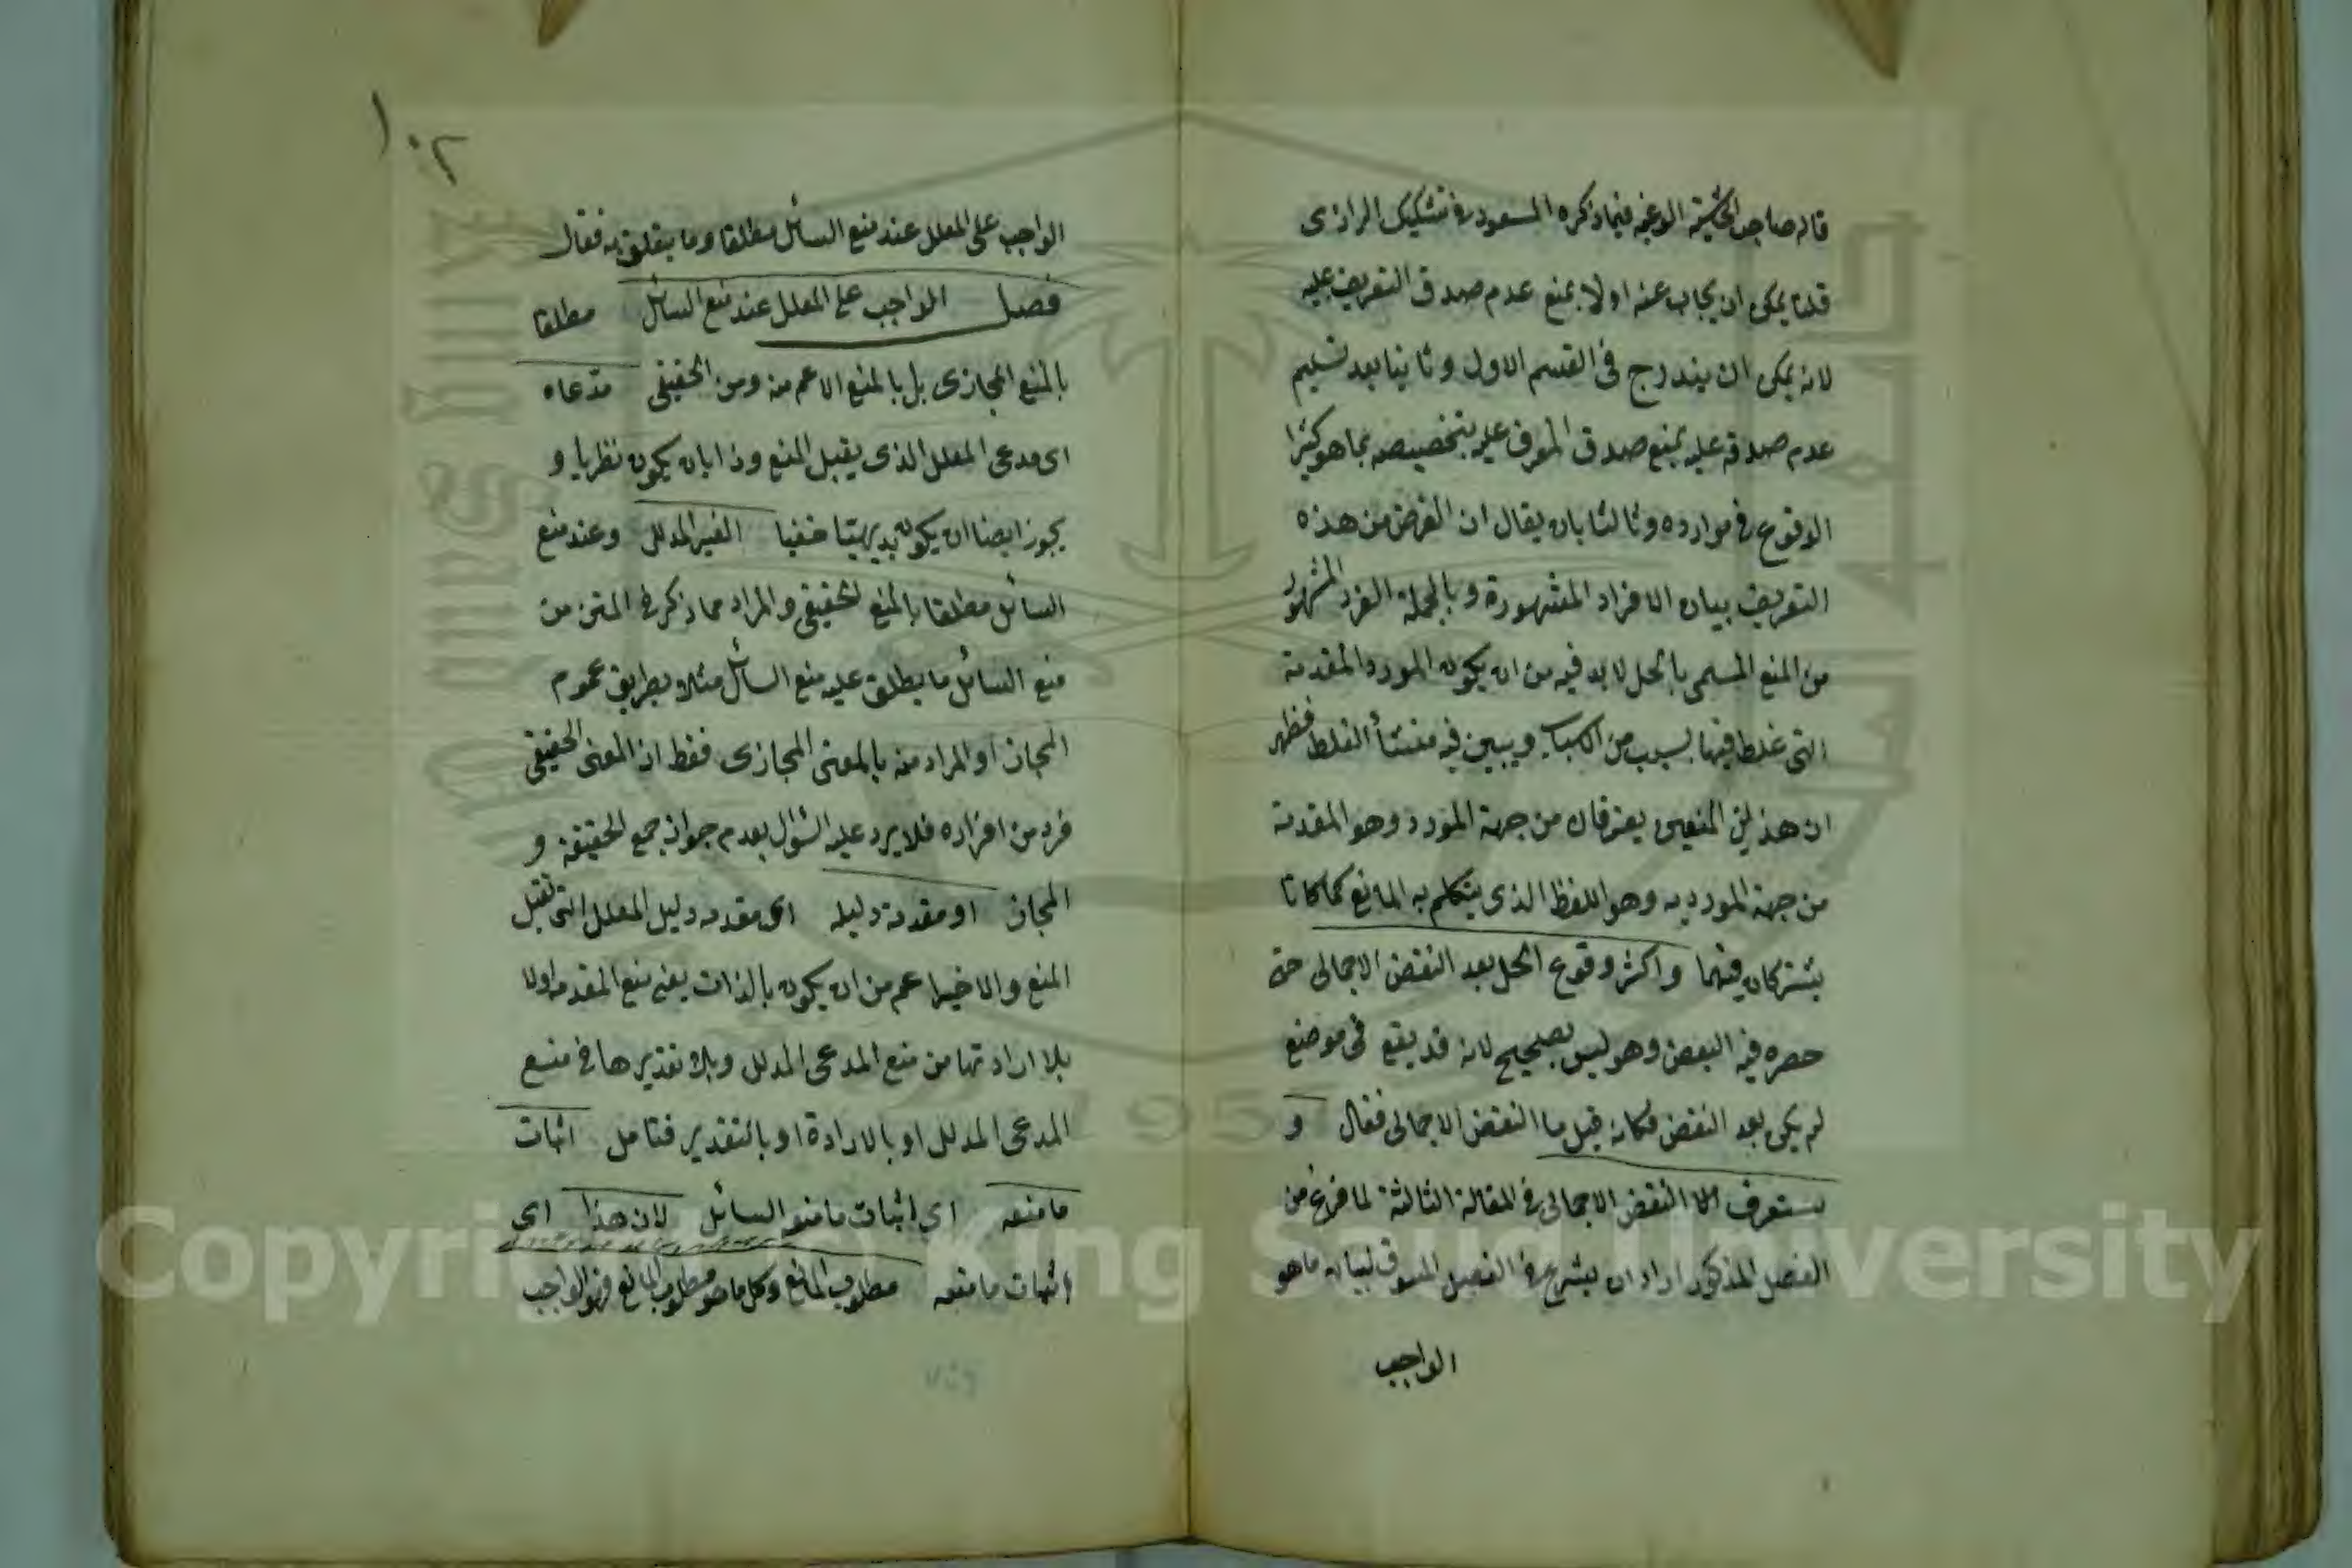 قاله صاحب الحاشية الوغيه فيما ذكره المسعود في تشكيك الرازى
قلنا يمكن ان يجاب عنه اولا بمنع عدم صدق التعريف عليه
لانه يمكن ان يندرج فى القسم الاول وثانيا بعد تسليم
عدم صدقه عليه بمنع صدق المعرف عليه بتخصيصه بما هو كثير
الوقوع في موارده وثالثا بان يقال ان الغرض من هذه
التعريف بيان الافراد المشهورة وبالجملة الفرد المشهور
من المنع المسمى بالحل لا بد فيه من ان يكون المورد المقدمة
التى غلط فيها بسبب من الاسباب ويبين فيه منشأ الغلط فظهر
ان هذين المنعين يفترقان من جهة المورد وهو المقدمة
من جهة المورد به وهو اللفظ الذى يتكلم به المانع كما كانا
يشتركان فيهما واكثر وقوع الحل بعد النقض الاجمالى حتى
حصره فيه البعض وهو ليس بصحيح لانه قد يقع فى موضع
لم يكن بعد النقض فكانه قيل ما النقض الاجمالى فقال و
ستعرف النقض الاجمالى في المقالة الثالثة لما فرغ من
الفصل المذكور اراد ان يشرع في الفصل المسوق لبيان ما هو
الواجب
١٠٢
الواجب على المعلل عند منع السائل مطلقا وما يتعلق به فقال
فصل الواجب على المعلل عند منع السائل مطلقا
بالمنع المجازى بل بالمنع الاعم منه ومن الحقيقى مدعاه
اى مدعى المعلل الذى يقبل المنع وذا بان يكون نظريا و
يجوز ايضا ان يكون بديهيا خفيا الغير المدلل وعند منع
السائل مطلقا بالمنع الحقيقى والمراد مما ذكر في المتن من
منع السائل ما يطلق عليه منع السائل مثلا بطريق عموم
المجاز او المراد منه بالمعنى المجازى فقط اذ المعنى الحقيقى
فرد من افراده فلا يرد عليه السؤال بعدم جواز جمع الحقيقة و
المجاز او مقدمة دليله اى مقدمه دليل المعلل التى تقبل
المنع والاخير اعم من ان يكون بالذات يعنى منع المقدمه اولا
بلا ارادتها من منع المدعى المدلل وبلا تقديرها في منع
المدعى المدلل او بالارادة او بالتقدير فتامل اثبات
ما منعه اى اثبات ما منعه السائل لان هذا اى
اثبات ما منعه مطلوب المانع وكل ما هو مطلوب المانع فهو الواجب